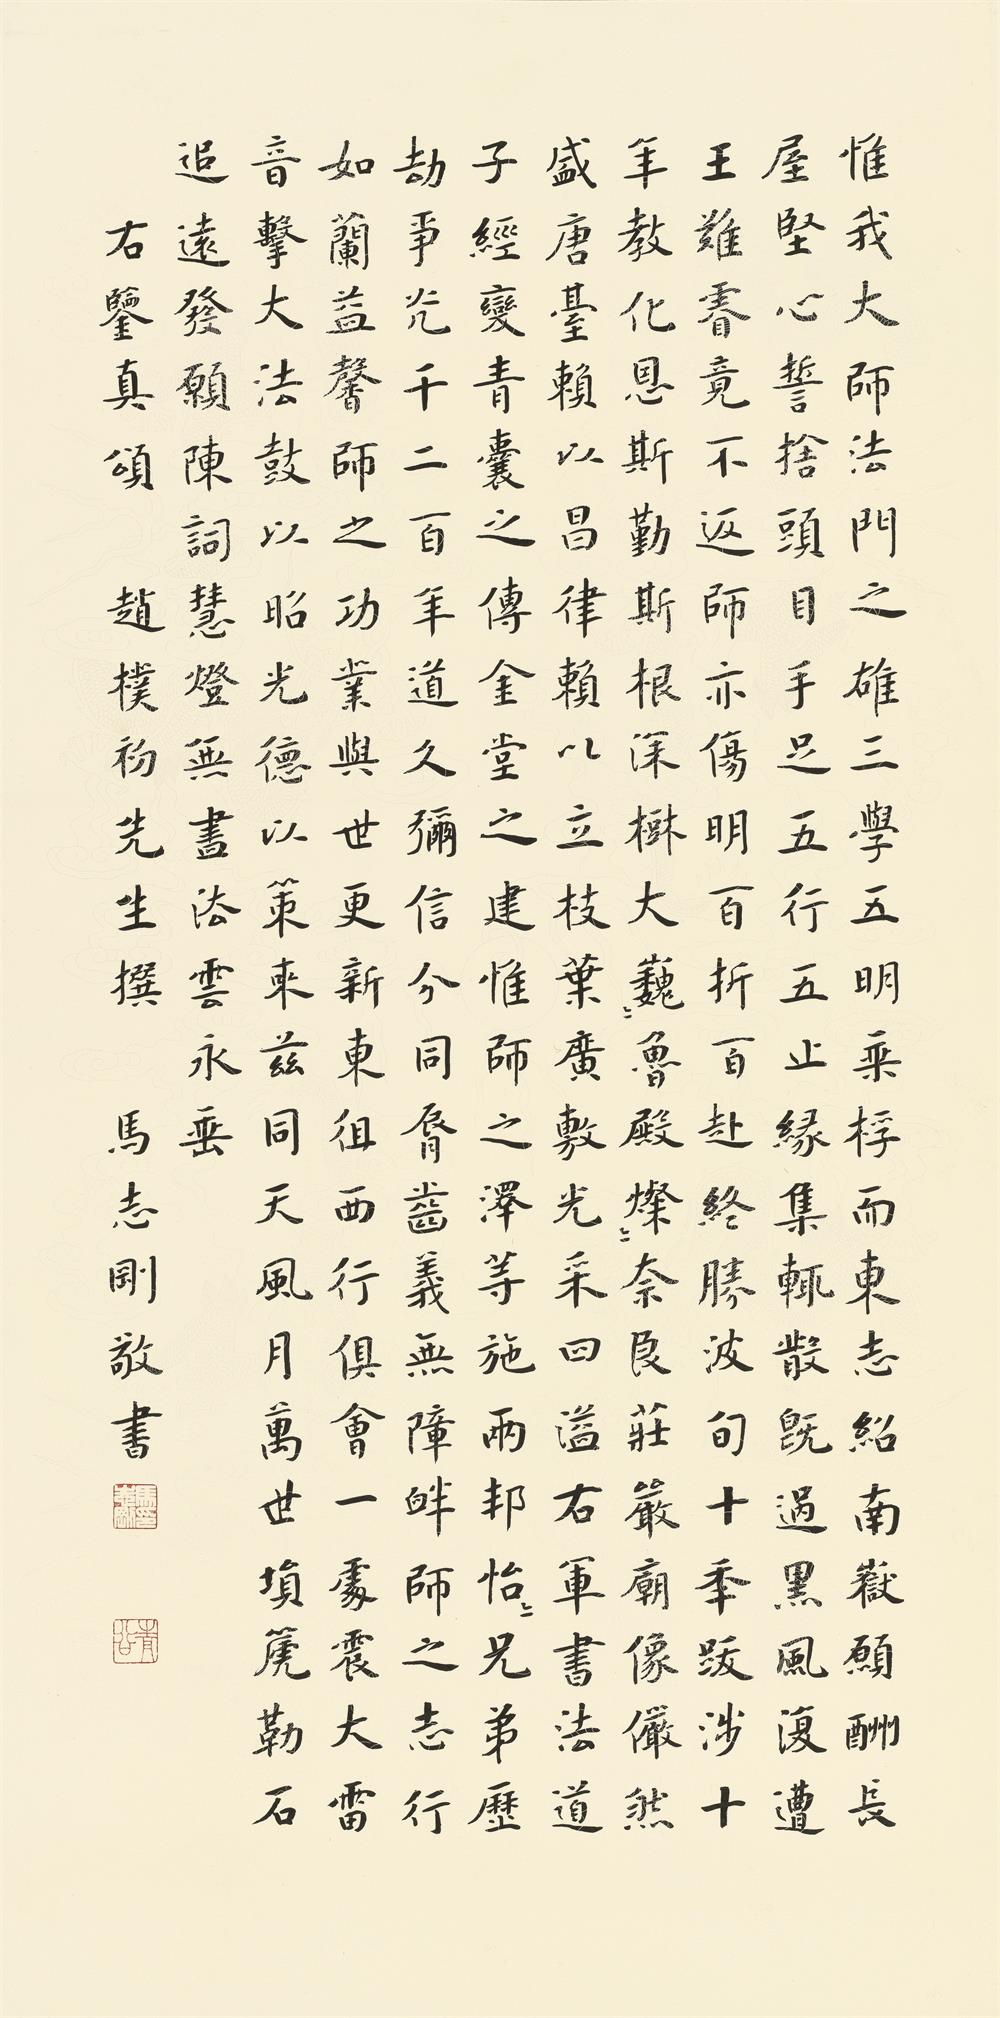 惟我大師法門之雄三學五明乘桴而東志紹南嶽願酬長
屋堅心誓捨頭目手足五行五止緣集輒散旣過黑風復遭
王難睿竟不返師亦傷明百折百赴終勝波旬十年跋涉十
年教化恩斯勤斯根深樹大巍〻魯殿燦〻奈良莊嚴廟像儼然
盛唐臺賴以昌律賴以立枝葉廣敷光采曰溢右軍書法道
子經變青囊之傳金堂之建惟師之澤等施兩邦怡〻兄弟歷
劫爭光千二百年道久彌信分同脣齒義無障畔師之志行
如蘭益馨師之功業與世更新東徂西行俱會一處震大雷
音擊大法鼓以昭光德以策來茲同天風月萬世塤篪勒石
追遠發願陳詞慧燈無盡法雲永垂
右鑒真頌 趙樸初先生撰 馬志剛敬書